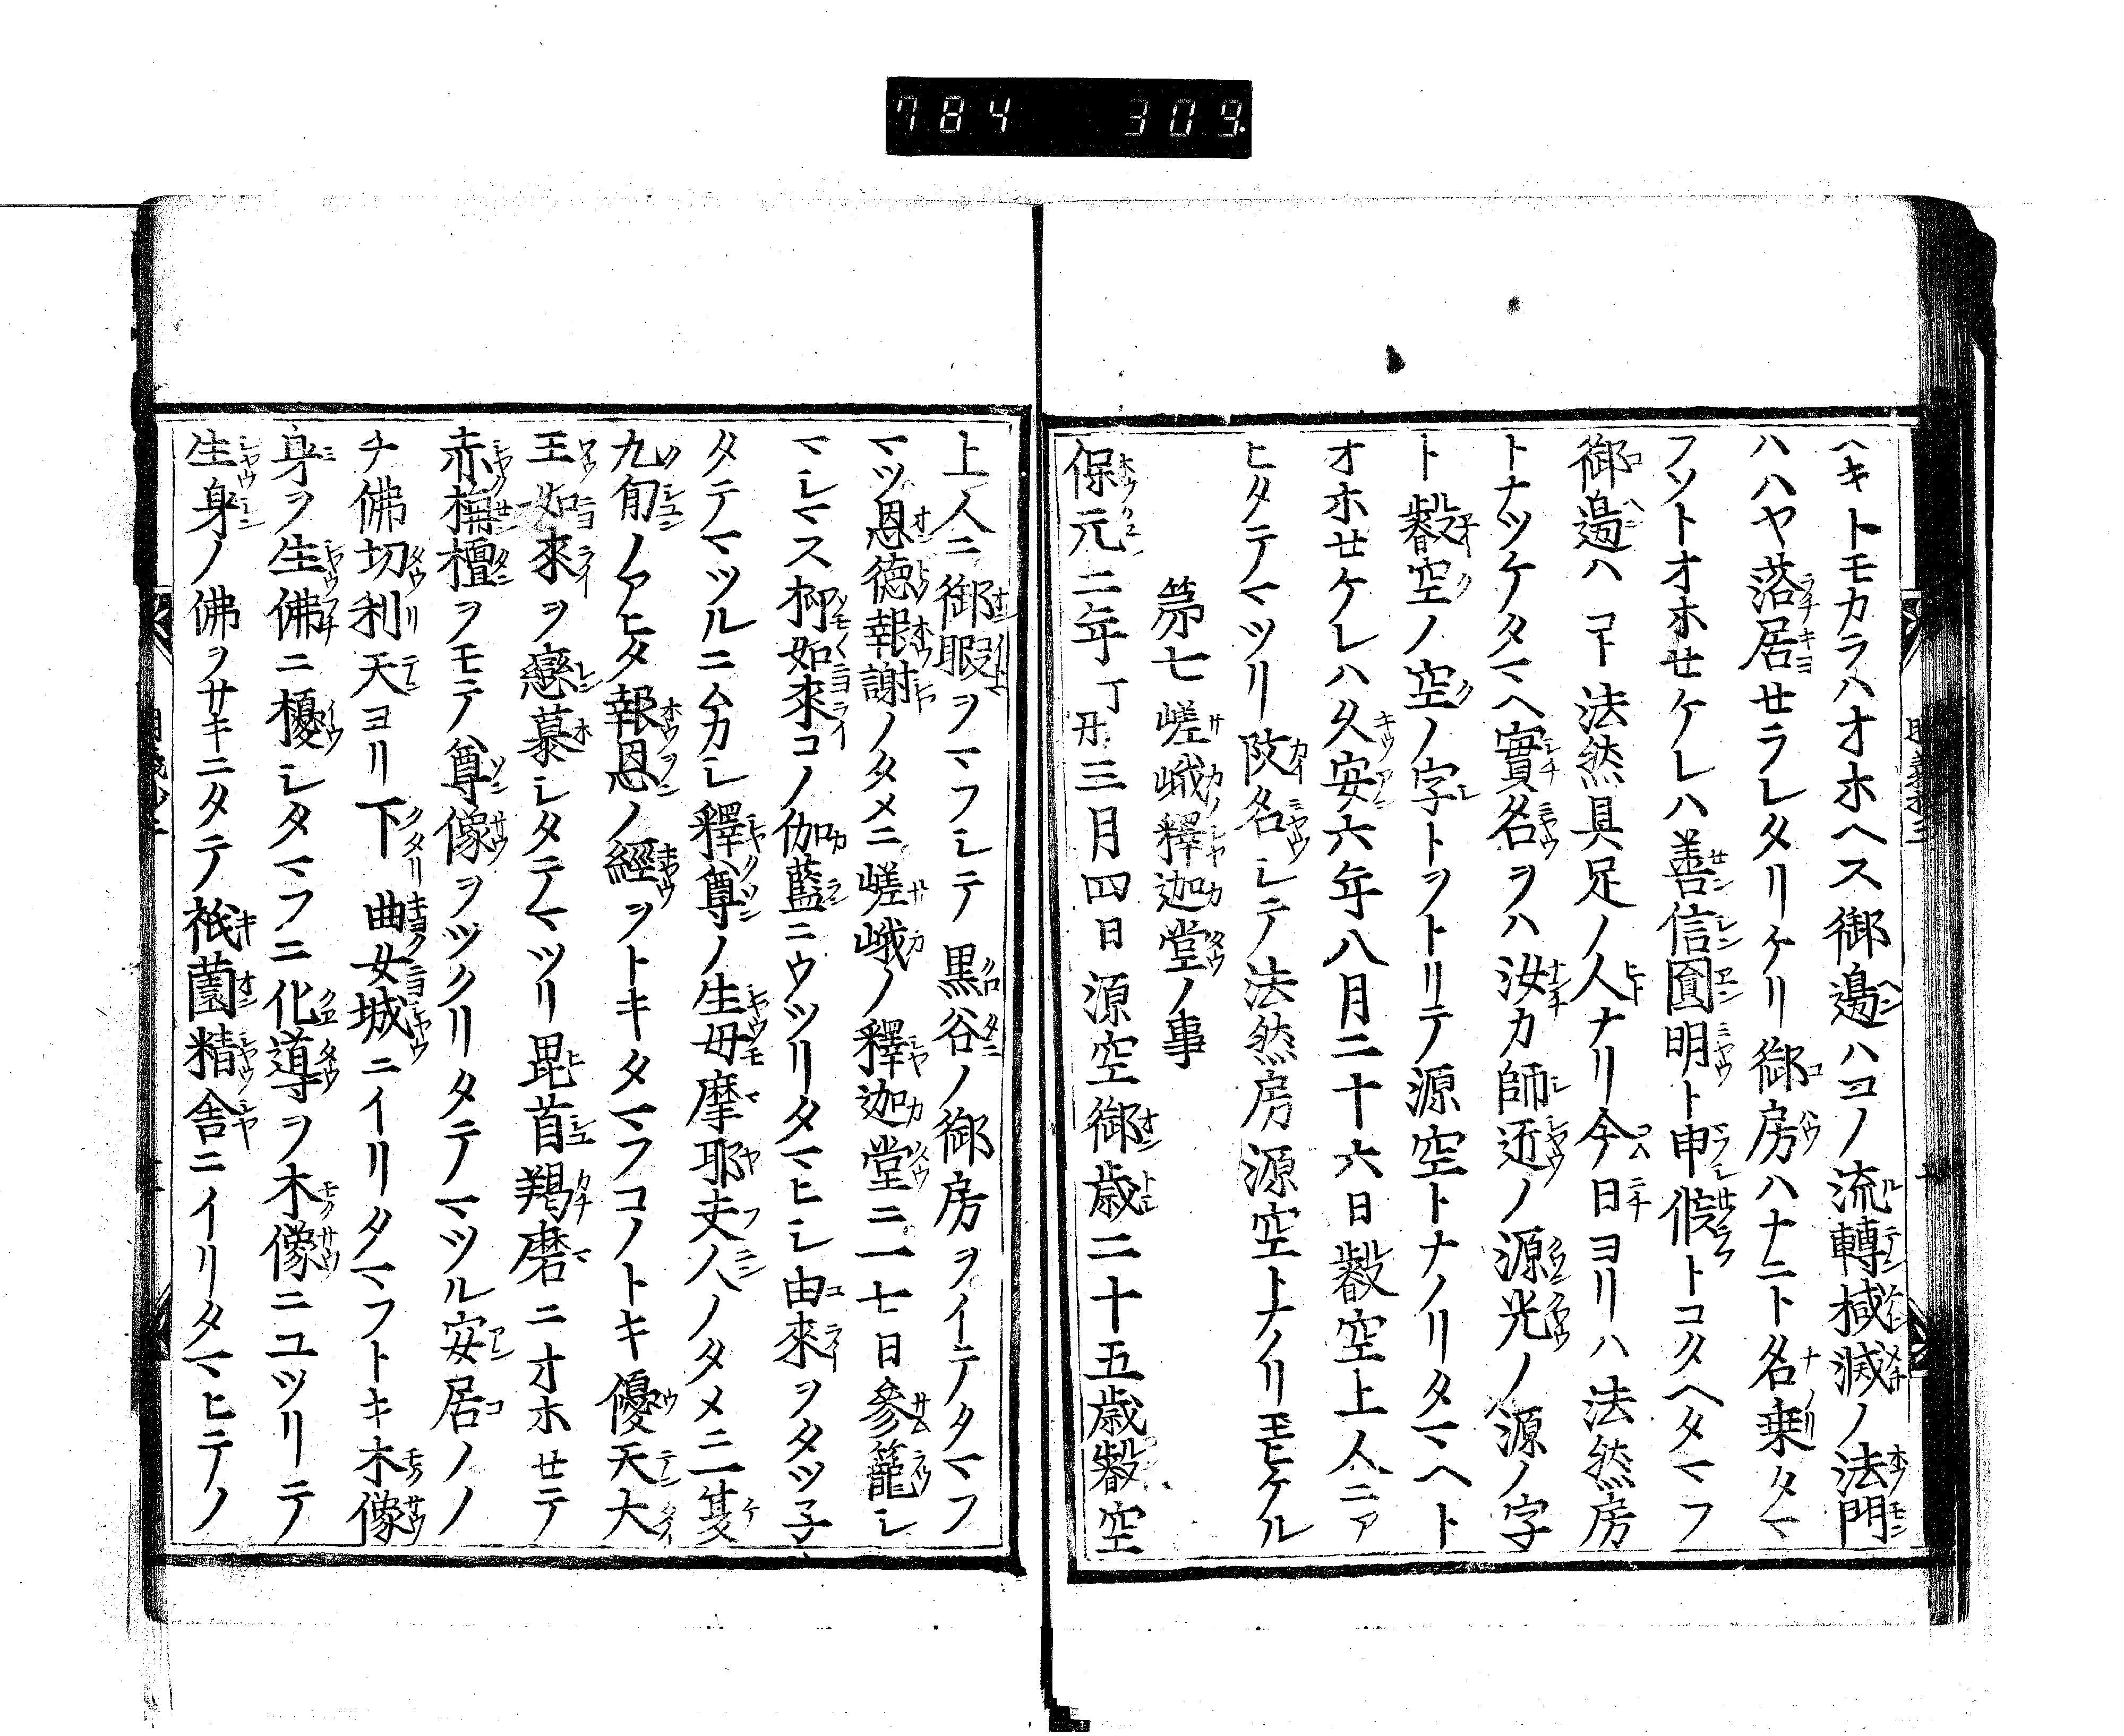 784 309
ヘキトモカラハオホヘス御邊ハコノ流轉㨔滅ノ法門
ハハヤ落居せラレタリケリ御房ハナニト名乗タマ
フソトオホせケレハ善信圓明ト申候トコタヘタマフ
御邊ハヿ下法然具足ノ人ナリ今日ヨリハ法然房
トナツケタマヘ實名ヲハ汝カ師近ノ源光ノ源ノ字
ト叡空ノ空ノ字トヲトリテ源空トナノリタマヘト
オホせケレハ久安六年八月二十六日叡空上人ニア
ヒタテマツリ改名シテ法然房源空トナノリ玉ヒケル
第七嵯峨釋迦堂ノ事
保元二年丁丑三月四日源空御歳二十五歳叡空
上人ニ御暇ヲマフシテ黒谷ノ御房ヲイテタマフ
マツ恩徳報謝ノタメニ嵯峨ノ釋迦堂ニ一七日參籠シ
マシマス抑如來コノ伽藍ニウツリタマヒシ由來ヲタツ子
タテマツルニムカシ釋尊ノ生母摩耶夫人ノタメニ一夏
九旬ノアヒタ報恩ノ經ヲトキタマフコノトキ優天大
王如來ヲ戀慕シタテマツリ毘首羯磨ニオホせテ
赤栴檀ヲモテ尊像ヲツクリタテマツル安居ノノ
チ佛切利天ヨリ下曲女城ニイリタマフトキ木像
身ヲ生佛ニ擾シタマフニ化導ヲ木像ニユツリテ
生身ノ佛ヲサキニタテ祇薗精舎ニイリタマヒテノ